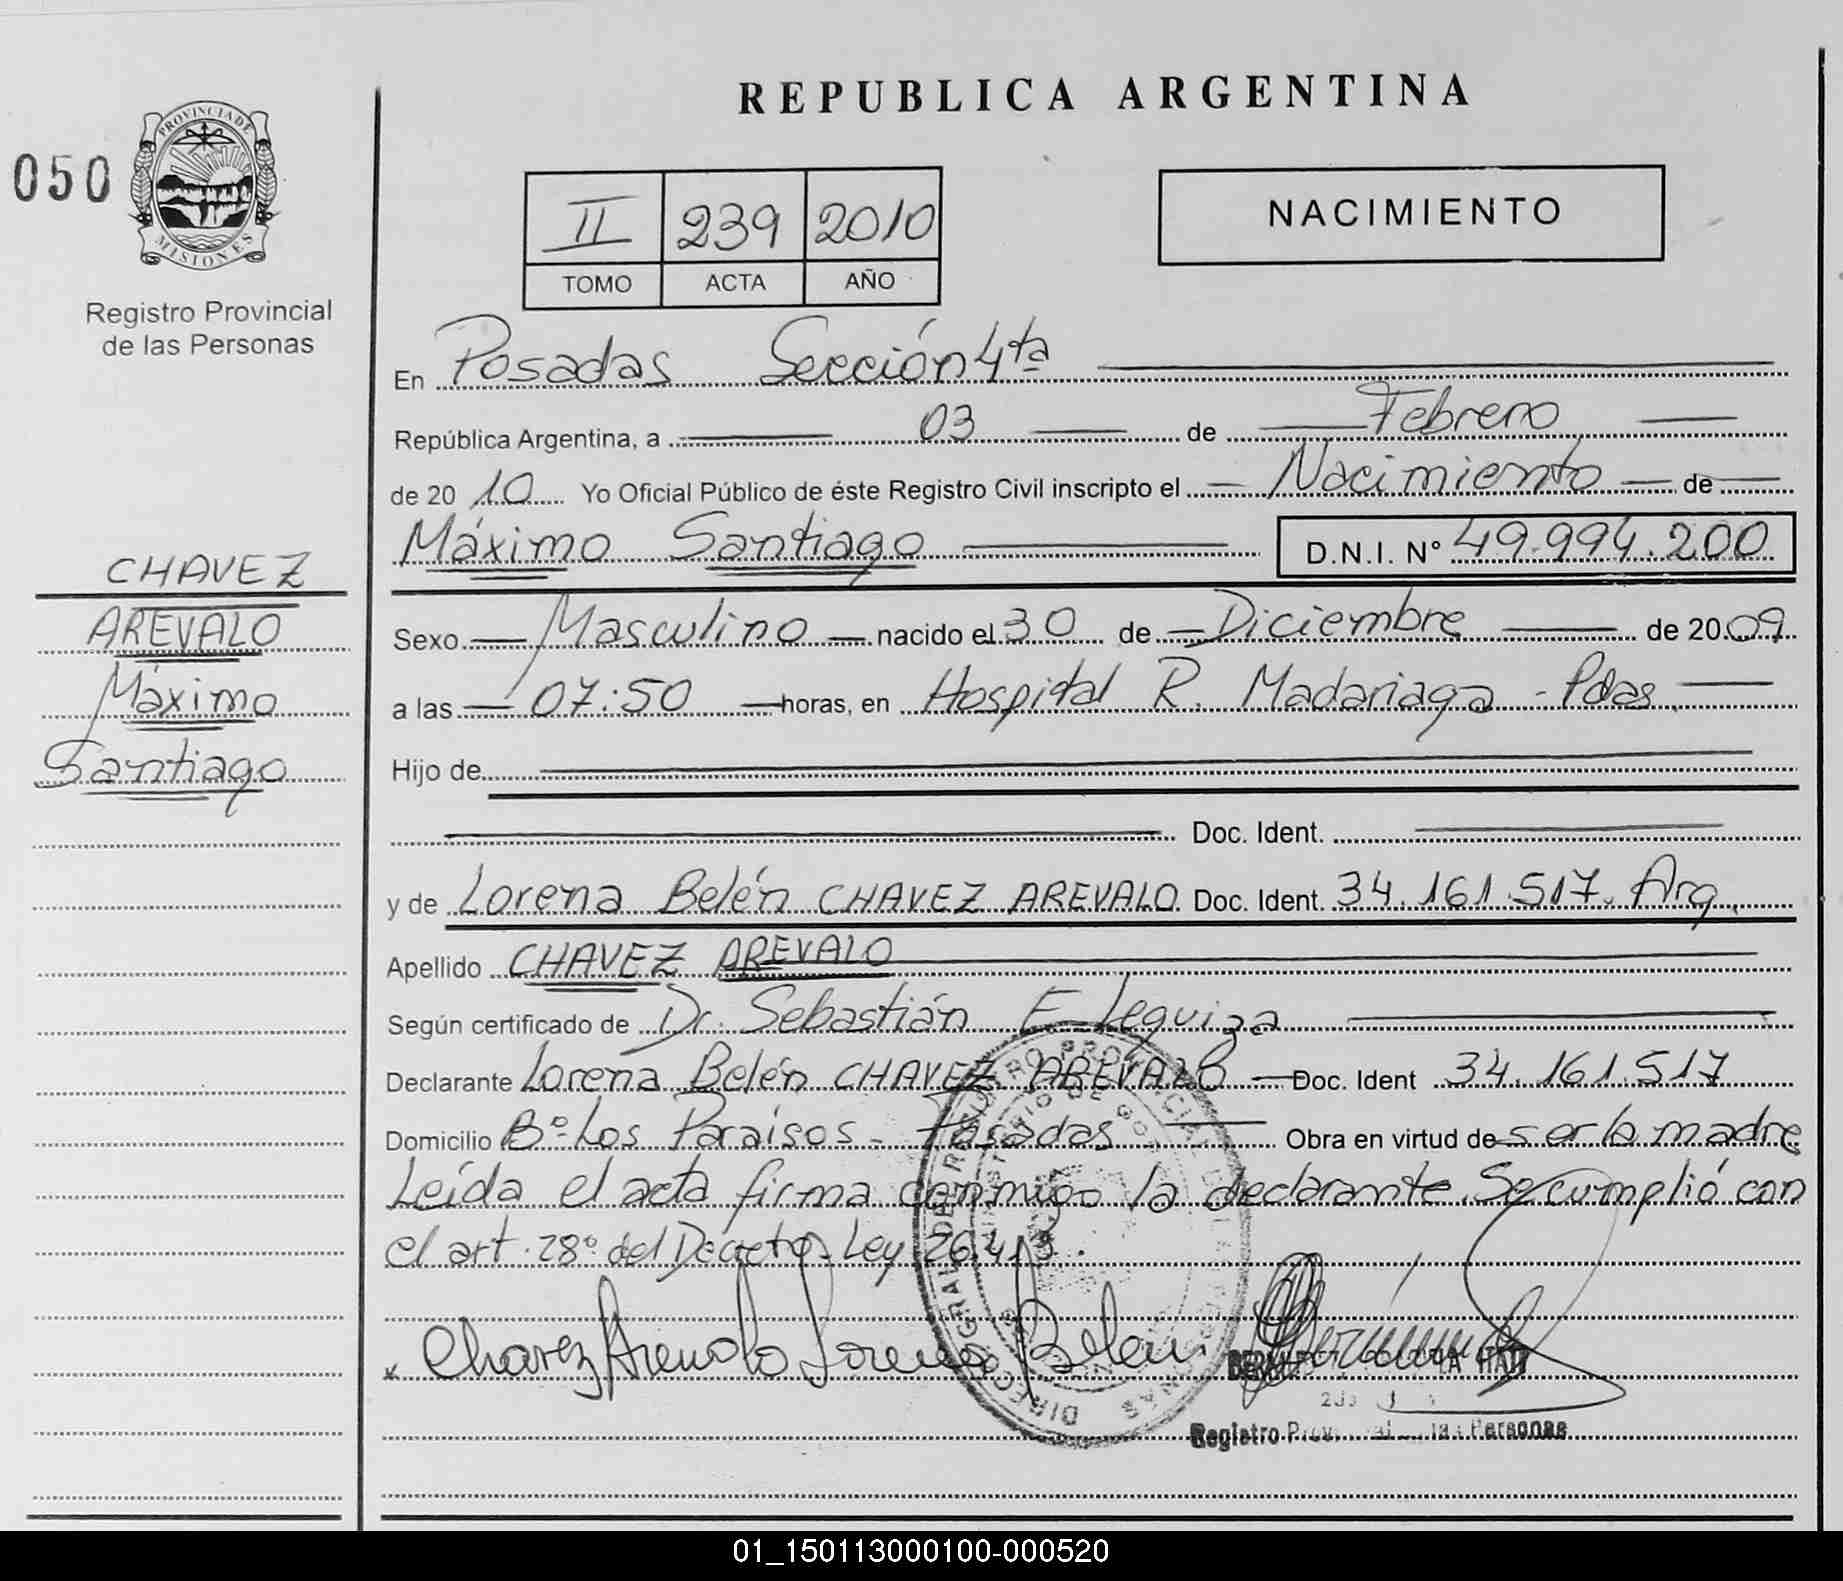 REPUBLICA ARGENTINA
050
PROVINCIA DE
MISIONES
Registro Provincial
de las Personas
II 239 2010
TOMO ACTA AÑO
NACIMIENTO
En Posadas Sección 4ta
República Argentina, a 03 de Febrero
de 2010 Yo Oficial Público de éste Registro Civil inscripto el Nacimiento de
Máximo Santiago D.N.I. Nº 49.994.200
CHAVEZ
AREVALO
Máximo
Santiago
Sexo Masculino nacido el 30 de Diciembre de 2009
a las 07:50 horas, en Hospital R. Madariaga - Pdas
Hijo de
Doc. Ident.
y de Lorena Belén CHAVEZ AREVALO Doc. Ident. 34.161.517. Arg.
Apellido CHAVEZ AREVALO
Según certificado de Dr. Sebastián E Leguiza
Declarante Lorena Belén CHAVEZ AREVALO Doc. Ident 34.161.517
Domicilio Bº Los Paraisos - Posadas Obra en virtud de ser la madre
Leída el acta firma conmigo la declarante. Se cumplió con
el art. 28º del Decreto Ley 26.413.
Chavez Arevalo Lorena Belen
Registro Personas
01_150113000100-000520